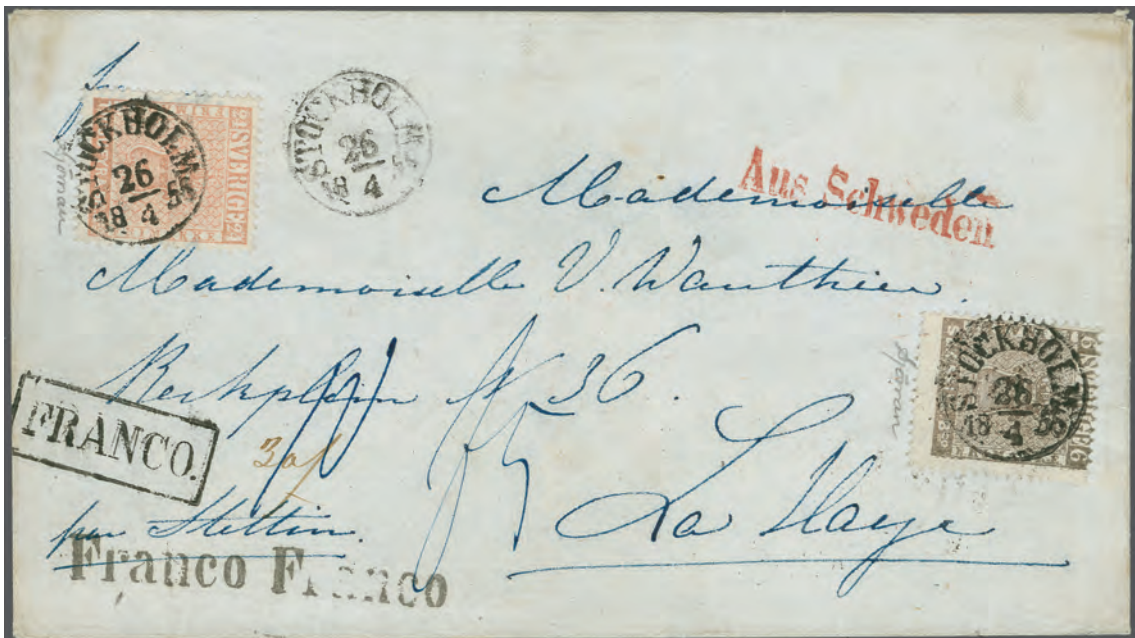 STOCKHOLM
26
18 4 55
24 SVERIGE 24
STOCKHOLM
26
18 4 55
Aus Schweden
Mademoiselle
Mademoiselle V. Wauthier
Kerkplein N 36.
STOCKHOLM
26
18 4 55
FRANCO.
par Stettin.
La Haye
Franco Franco